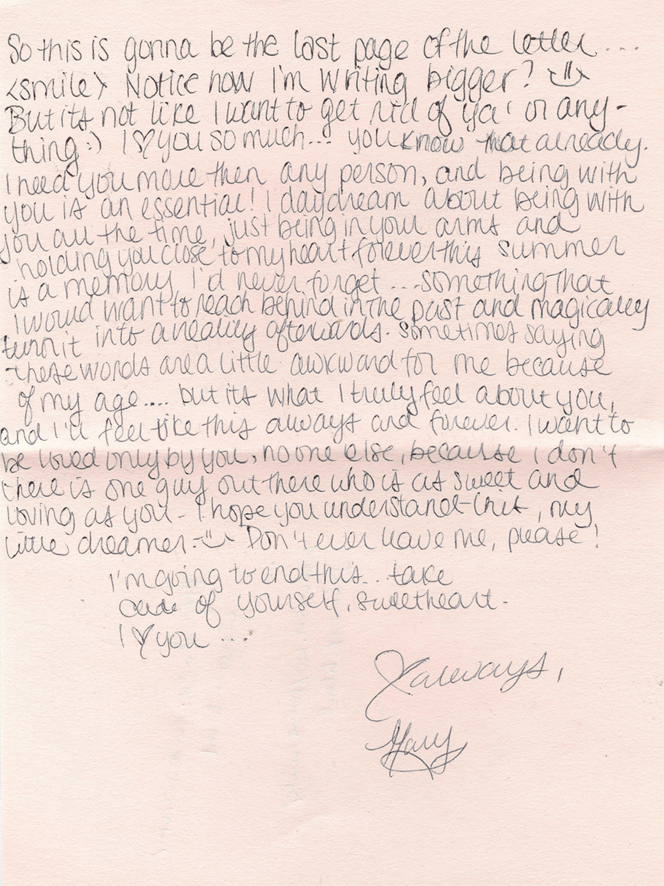 So this is gonna be the last page of the letter ...
<smile> Notice how I'm writing bigger?
But its not like I want to get rid of ya' or any-
thing:) I ♡ you so much... you know that already.
I need you more then any person, and being with
you is an essential! I daydream about being with
you all the time, just being in your arms and
holding you close to my heart forever this summer
is a memory I'd never forget ... something that
I would want to reach behind in the past and magically
turn it into a reality afterwards. Sometimes saying
these words are a little awkward for me because
of my age .... but its what I truly feel about you,
and I'll feel like this always and forever. I want to
be loved only by you, no one else, because I don't
there is one guy out there who is as sweet and
loving as you - I hope you understand this, my
little dreamer. Don't ever leave me, please!
I'm going to end this.. take
care of yourself, sweetheart.
I ♡ you ...
♡ always,
Mary